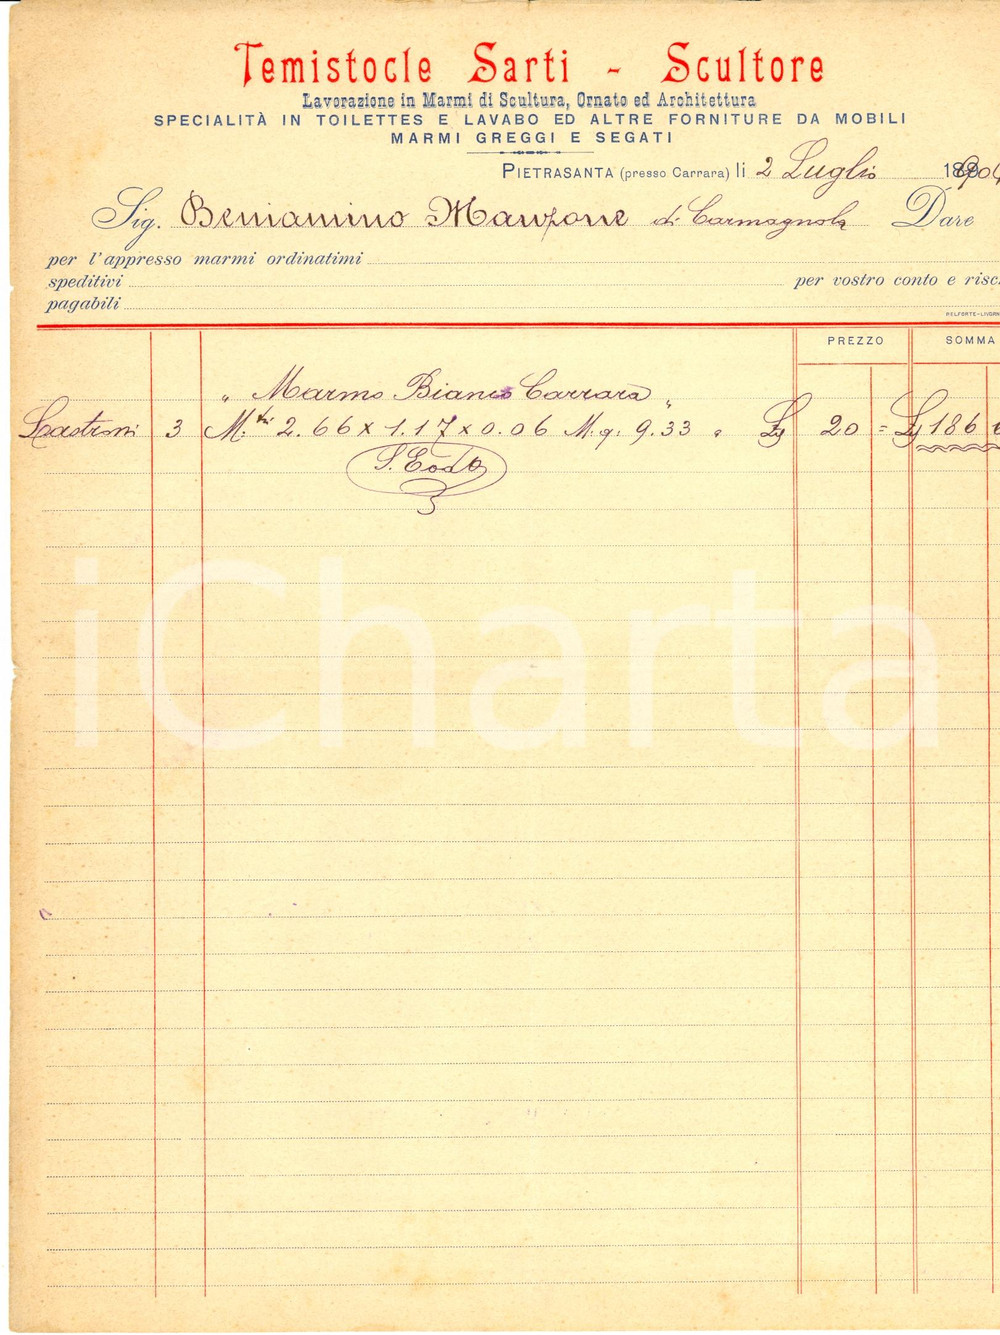 Temistocle Sarti - Scultore
Lavorazione in Marmi di Scultura, Ornato ed Architettura
SPECIALITÀ IN TOILETTES E LAVABO ED ALTRE FORNITURE DA MOBILI
MARMI GREGGI E SEGATI
PIETRASANTA (presso Carrara) li 2 Luglio 1904
Sig. Beniamino Manzone di Carmagnola Dare
per l'appresso marmi ordinatimi
speditivi per vostro conto e risc
pagabili
BELFORTE-LIVORN
PREZZO SOMMA
" Marmo Bianco Carrara "
Lastroni 3 M: tri 2.66 x 1.17 x 0.06 M: q: 9.33 " £ 20 = £ 186 6
S. E. o d. O.
iCharta